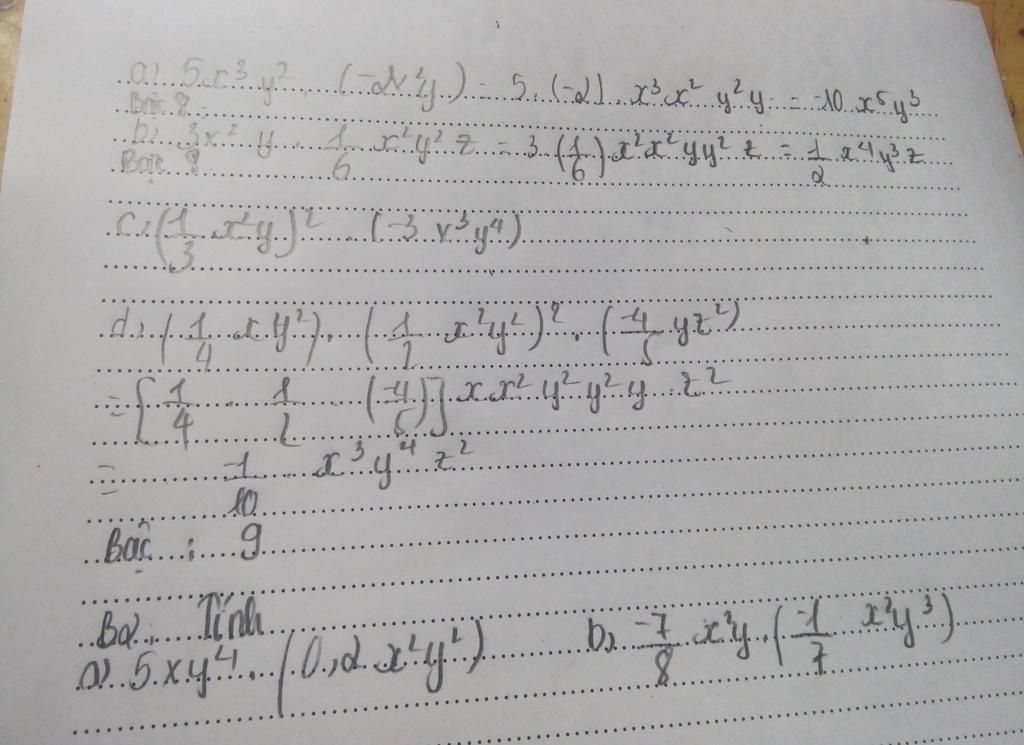 a) 5x³y² . (-2x²y) = 5 . (-2) . x³x² y²y = -10 x⁵y³
Bậc 8
b) 3x²y . 1/6 x²y²z = 3 . (1/6) x²x² yy² z = 1/2 x⁴y³z
Bậc 8
c) (1/3 x²y)² . (-3 x³y⁴)
d) (1/4 xy²) . (1/2 x²y²)² . (-4/5 yz²)
= [1/4 . 1/2 . (-4/5)] xx² y²y²y z²
= -1/10 x³y⁴z²
Bậc : 9
B2. Tính
a) 5xy⁴ . (0,2 x²y²) b, -7/8 x²y . (-1/7 x²y³)